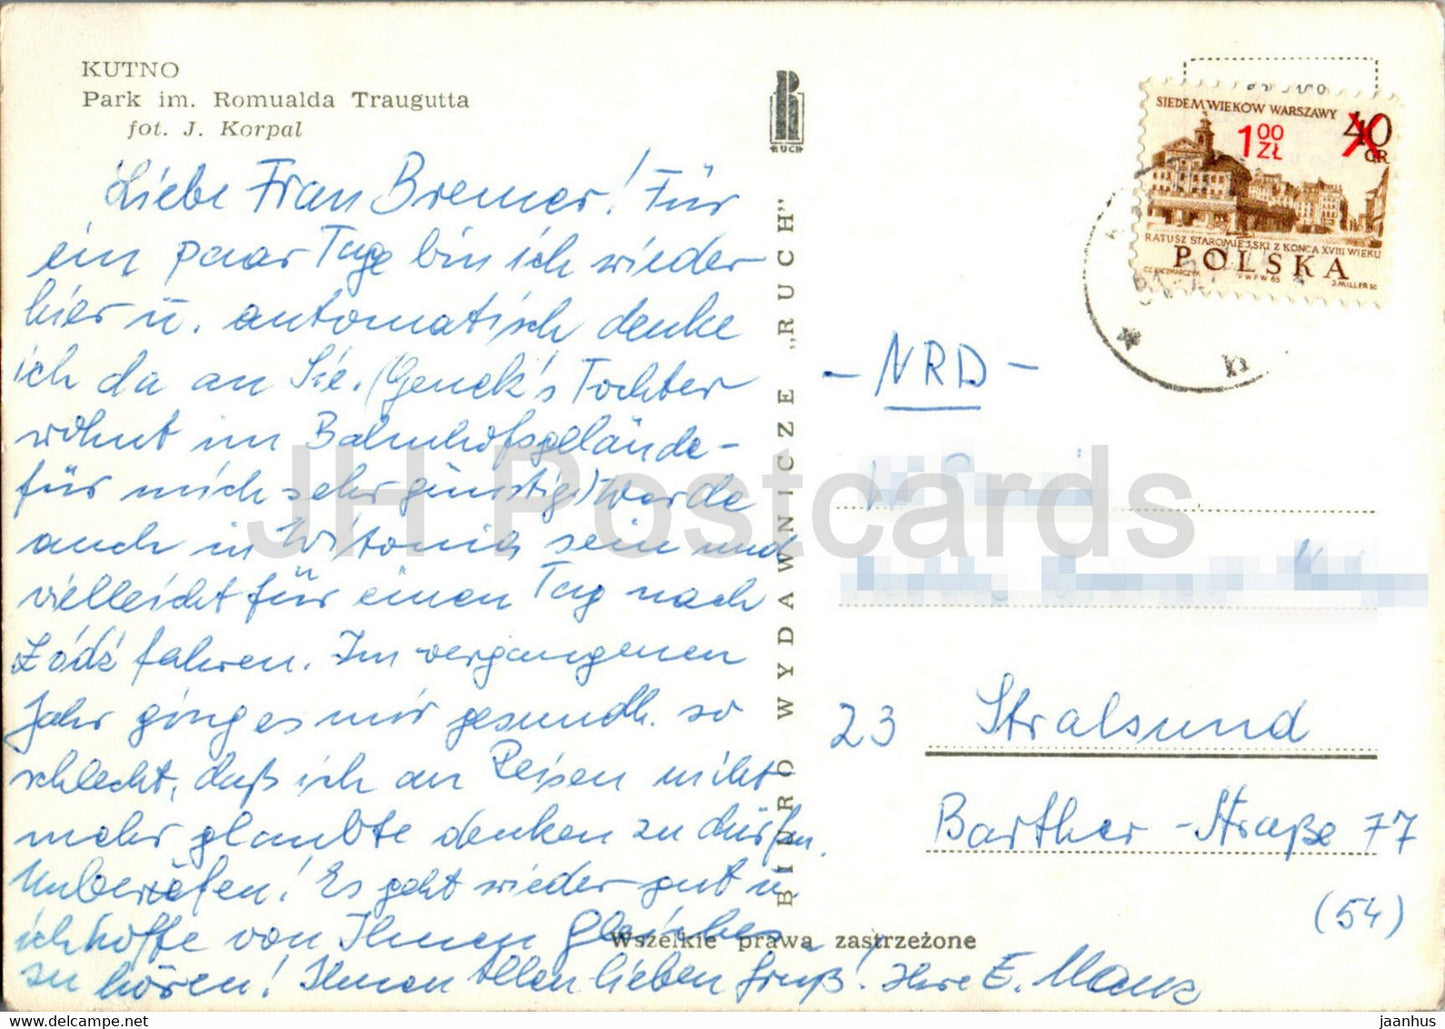 KUTNO
Park im. Romualda Traugutta
fot. J. Korpal
RUCH
Liebe Frau Bremer! Für
ein paar Tage bin ich wieder
hier u. automatisch denke
ich da an Sie. (Genek's Tochter
wohnt im Bahnhofsgelände-
für mich sehr günstig) Werde
auch in Witonia sein und
vielleicht für einen Tag nach
Łódź fahren. Im vergangenen
Jahr ging es mir gesundh. so
schlecht, daß ich an Reisen nicht
mehr glaubte denken zu dürfen.
Unberufen! Es geht wieder gut u.
ich hoffe von Ihnen Gleiches
zu hören! Ihnen Allen lieben Gruß! Ihre E.
BIURO WYDAWNICZE „RUCH"
Wszelkie prawa zastrzeżone
SIEDEM WIEKÓW WARSZAWY
1 00 ZŁ
40 GR
RATUSZ STAROMIEJSKI Z KOŃCA XVIII WIEKU
POLSKA
CZ. KACZMARCZYK P.W.P.W. 65 S. MILLER SC.
- NRD -
23 Stralsund
Barther-Straße 77
(54)
JH Postcards
jaanhus